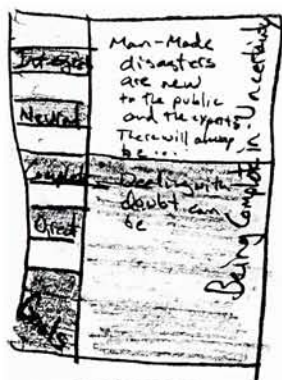 Integrated
Neutral
Complete
Direct
Man-Made
disasters
are new
to the public
and the experts
There will always
be....
Dealing with
doubt can
be
Being Complete in Uncertainty